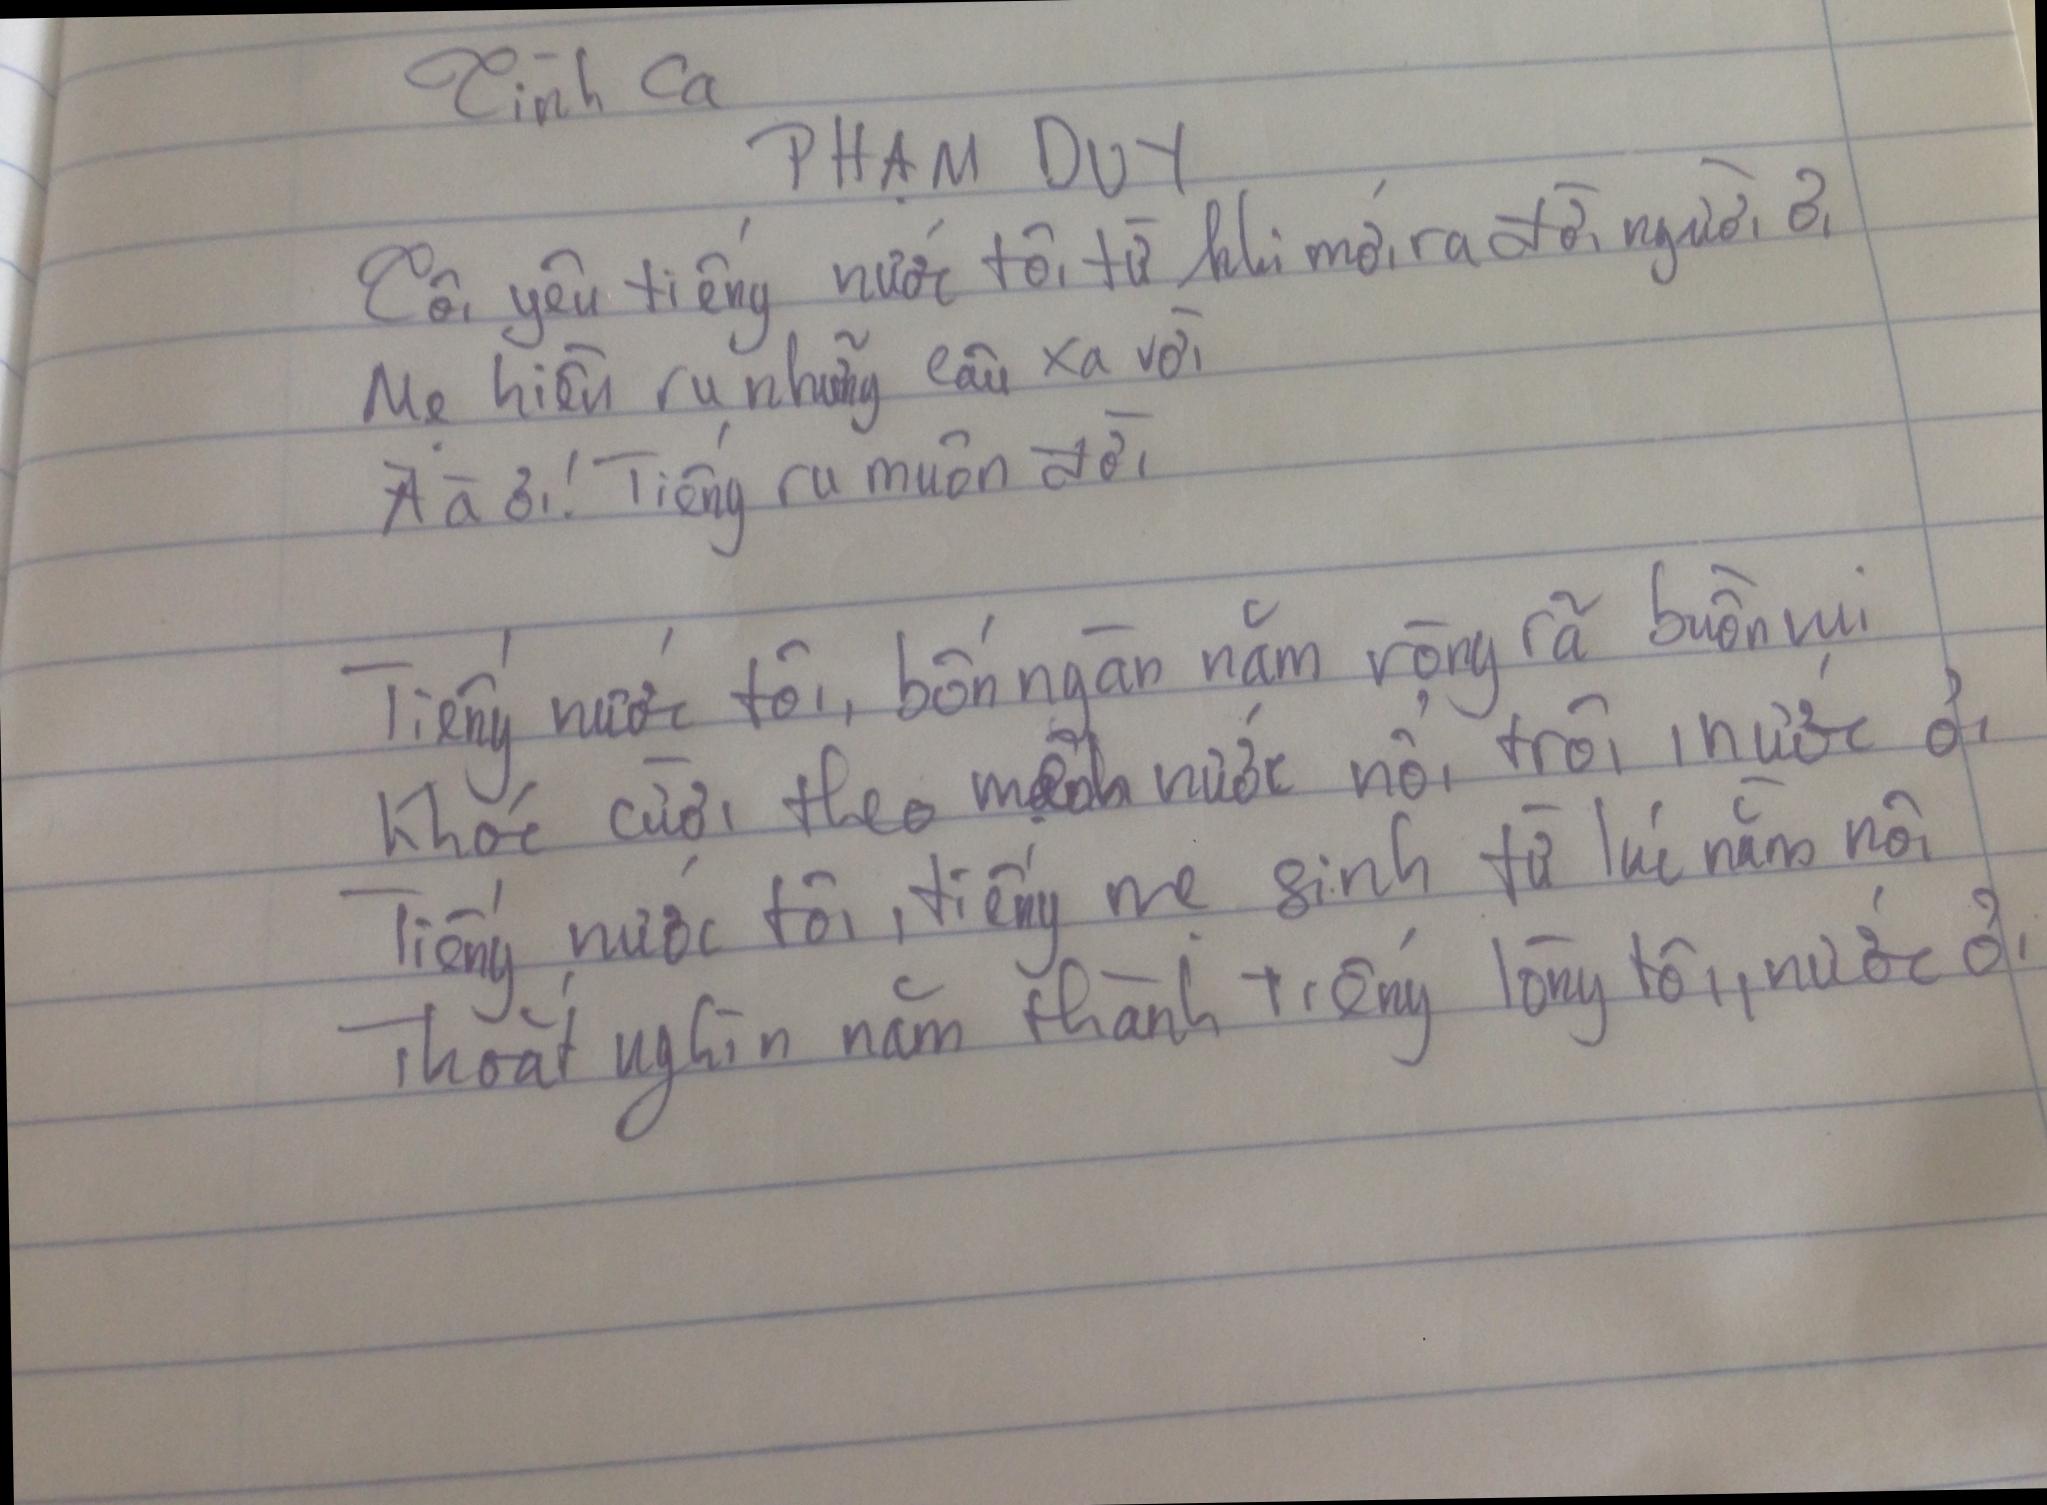 Tình Ca
PHẠM DUY
Tôi yêu tiếng nước tôi từ khi mới ra đời, người ơi
Mẹ hiền ru những câu xa vời
À à ơi! Tiếng ru muôn đời
Tiếng nước tôi, bốn ngàn năm ròng rã buồn vui
Khóc cười theo mệnh nước nổi trôi, nước ơi
Tiếng nước tôi, tiếng mẹ sinh từ lúc nằm nôi
Thoắt nghìn năm thành tiếng lòng tôi, nước ơi